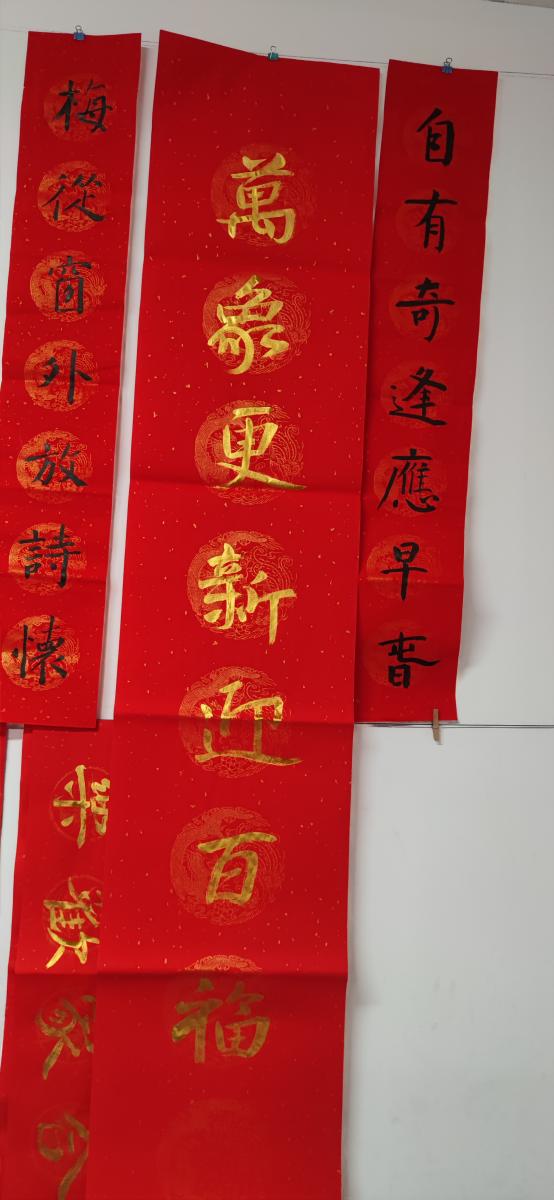 自有奇逢應早旾
萬象更新迎百福
梅從窗外放詩懷
合家歡樂